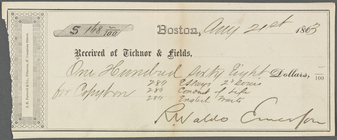 $ 168 00/100 Boston, Aug 21st 1863
Received of Ticknor & Fields,
One Hundred Sixty Eight Dollars, /100
for Copyright 289 Essays 2d Series
289 Conduct of Life
289 English Traits
R. Waldo Emerson